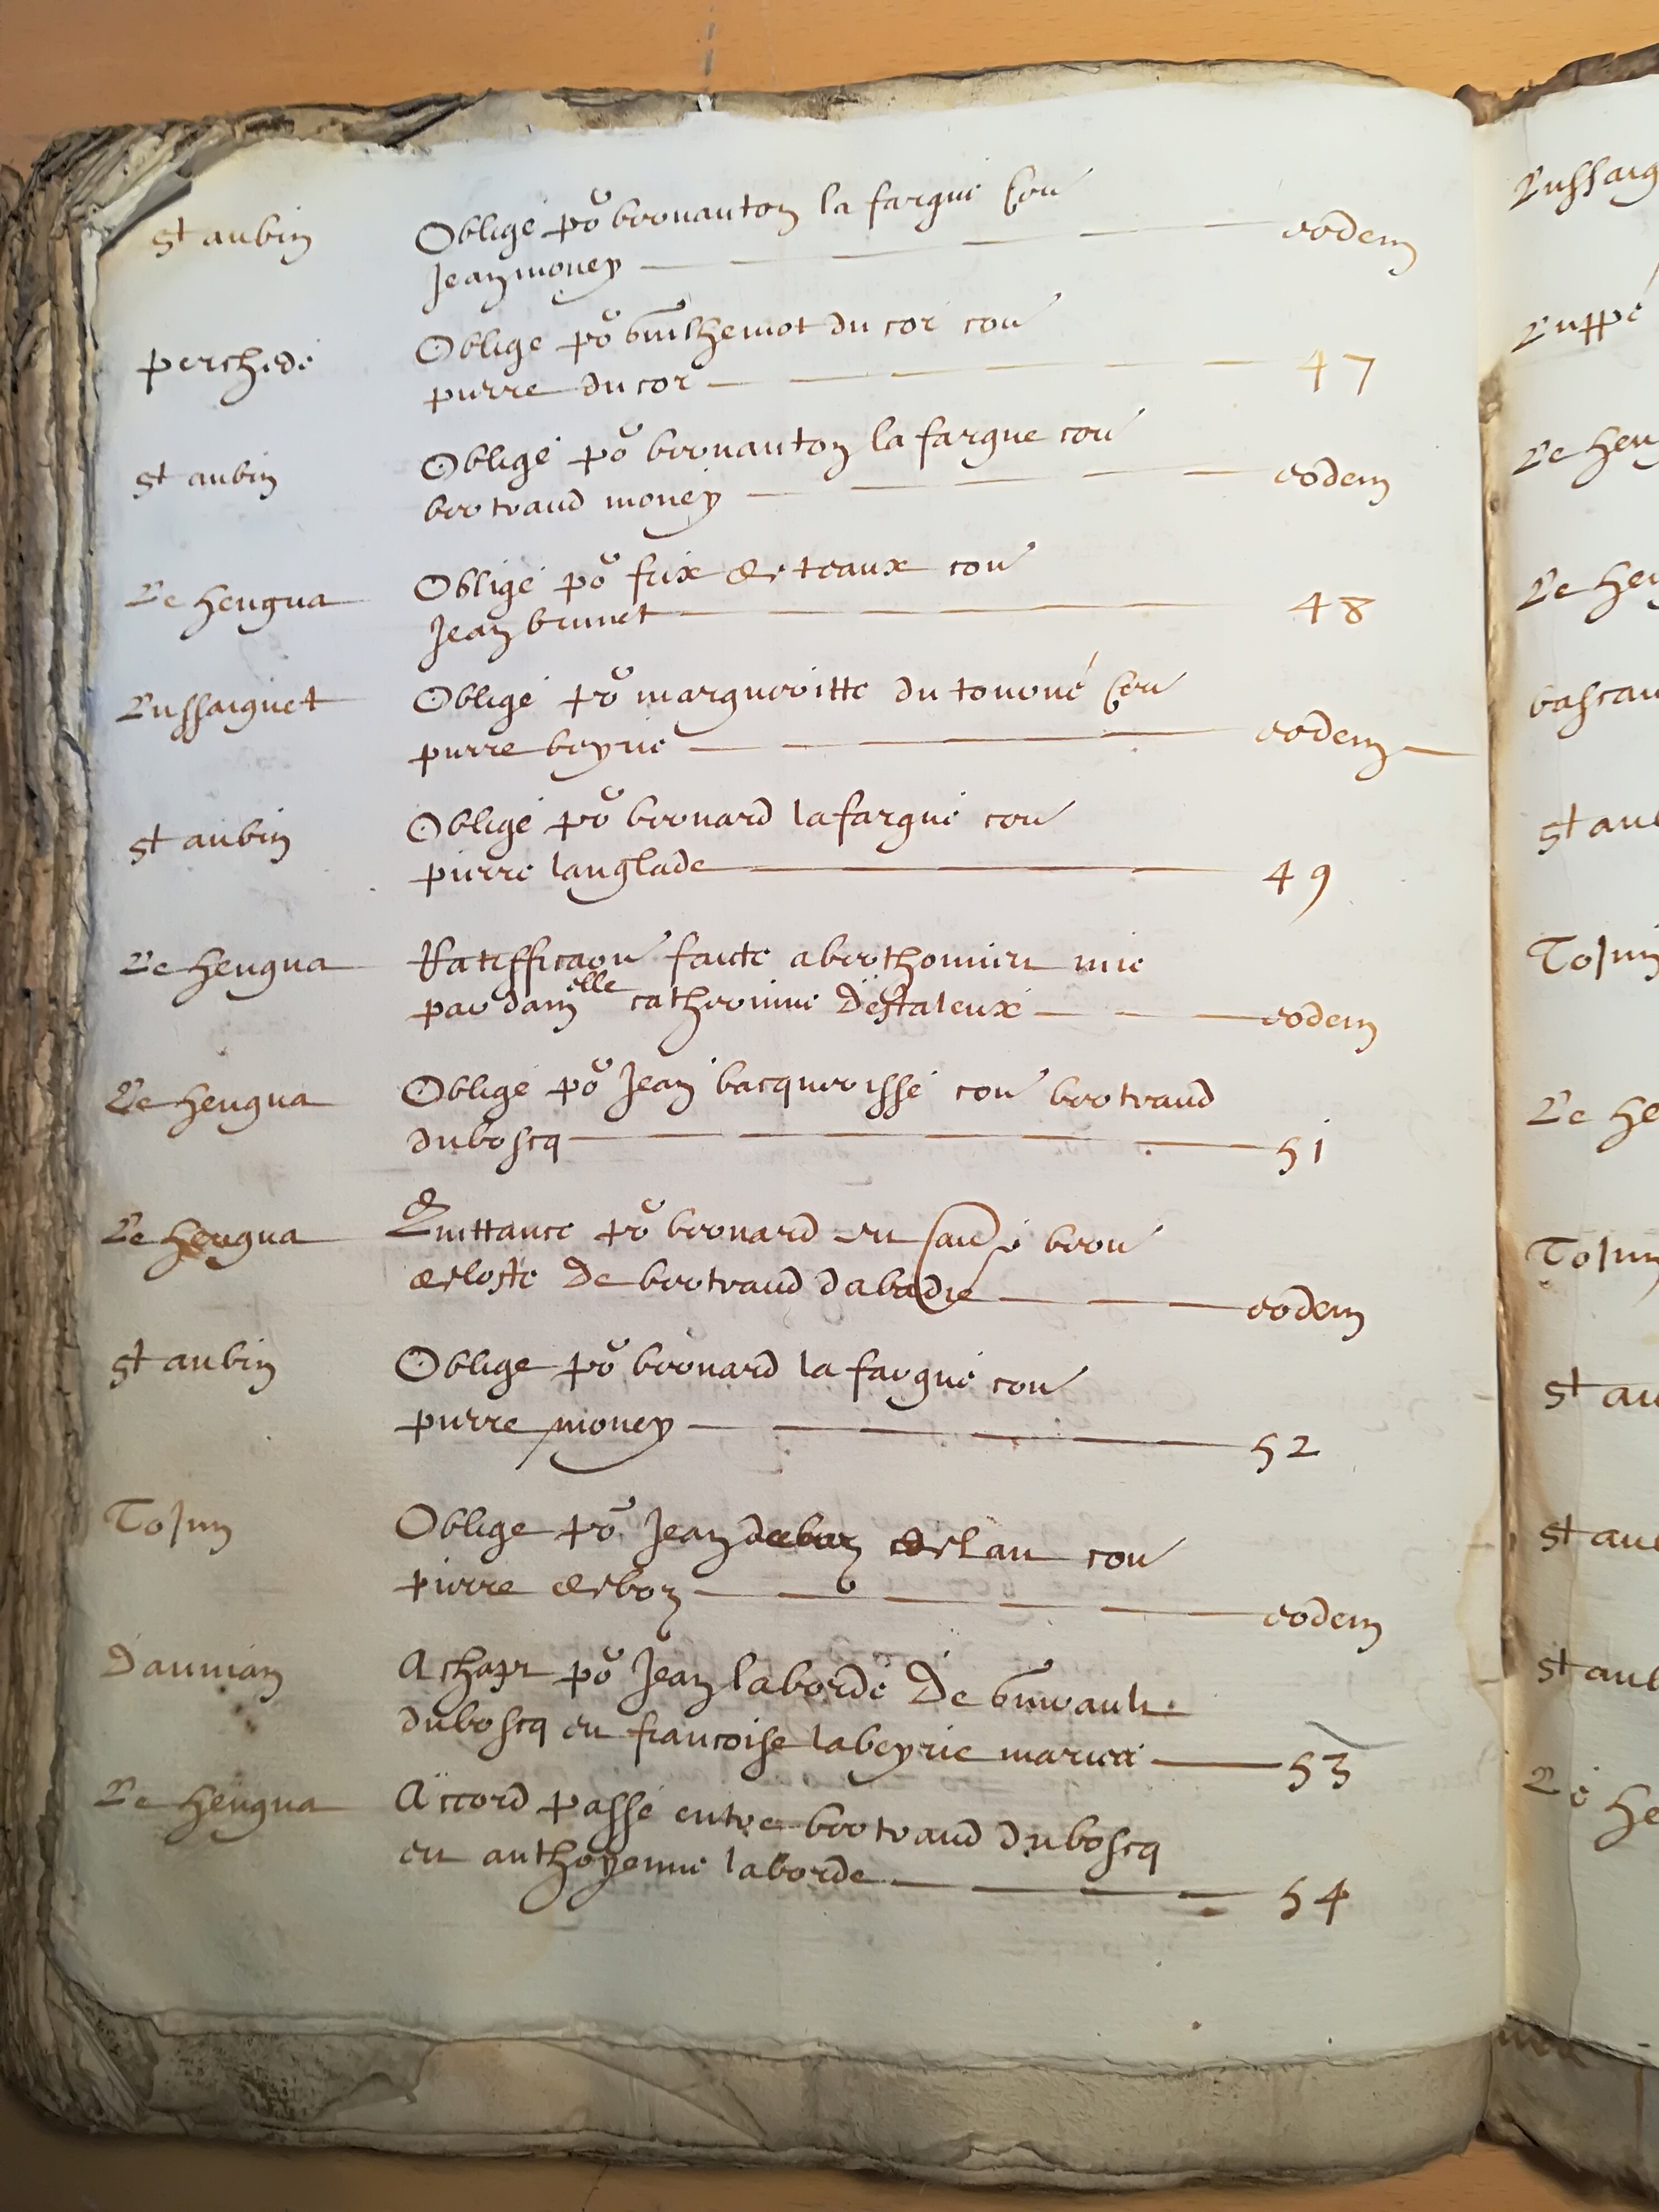 St aubin Oblige po bernanton lafargue con
Jean money eodem
perchede Oblige po guilhemot du cor con
pierre du cor 47
St aubin Oblige po bernanton lafargue con
bertrand money eodem
Le hengua Oblige po frix destraux con
Jean brunet 48
Lussaignet Oblige po margueritte du tonoué con
pierre beyrie eodem
St aubin Oblige po bernard lafargue con
pierre langlade 49
Le hengua Ratifficaon faicte a berthomieu mie
par dam.elle catherinne destaleux eodem
Le hengua Oblige po Jean bacquerisse con bertrand
duboscq 51
Le hengua Quittance po bernard et bern
deloste de bertrand dabadie eodem
St aubin Oblige po bernard lafargue con
pierre money 52
Tojun Oblige po Jean deslau con
pierre desbon eodem
Daunian Achapt po Jean laborde de guirault
duboscq et francoise labeyrie maries 53
Le hengua Accord passé entre bertrand duboscq
et anthoyenne laborde 54
Lussaig
Luppé
Le hen
Le hen
bascau
St aub
Tojun
Le he
Tojun
St au
St aub
St aub
Le he